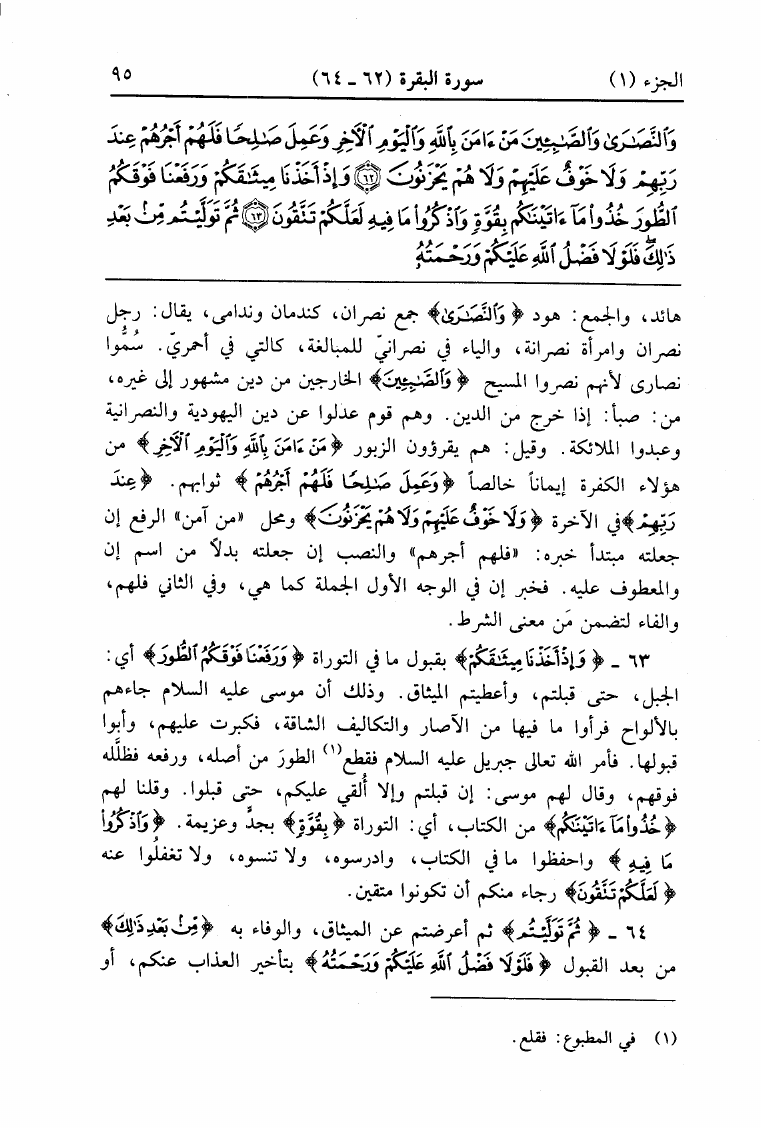 الجزء (١) سورة البقرة (٦٢ ـ ٦٤) ٩٥
وَٱلنَّصَٰرَىٰ وَٱلصَّٰبِـِٔينَ مَنْ ءَامَنَ بِٱللَّهِ وَٱلْيَوْمِ ٱلْءَاخِرِ وَعَمِلَ صَٰلِحًا فَلَهُمْ أَجْرُهُمْ عِندَ
رَبِّهِمْ وَلَا خَوْفٌ عَلَيْهِمْ وَلَا هُمْ يَحْزَنُونَ ﴿٦٢﴾ وَإِذْ أَخَذْنَا مِيثَٰقَكُمْ وَرَفَعْنَا فَوْقَكُمُ
ٱلطُّورَ خُذُوا۟ مَآ ءَاتَيْنَٰكُم بِقُوَّةٍ وَٱذْكُرُوا۟ مَا فِيهِ لَعَلَّكُمْ تَتَّقُونَ ﴿٦٣﴾ ثُمَّ تَوَلَّيْتُم مِّنۢ بَعْدِ
ذَٰلِكَ ۖ فَلَوْلَا فَضْلُ ٱللَّهِ عَلَيْكُمْ وَرَحْمَتُهُۥ
هائد، والجمع: هود ﴿وَٱلنَّصَٰرَىٰ﴾ جمع نصران، كندمان وندامى، يقال: رجل
نصران وامرأة نصرانة، والياء في نصرانيّ للمبالغة، كالتي في أحمريّ. سُمُّوا
نصارى لأنهم نصروا المسيح ﴿وَٱلصَّٰبِـِٔينَ﴾ الخارجين من دين مشهور إلى غيره،
من: صبأ: إذا خرج من الدين. وهم قوم عدلوا عن دين اليهودية والنصرانية
وعبدوا الملائكة. وقيل: هم يقرؤون الزبور ﴿مَنْ ءَامَنَ بِٱللَّهِ وَٱلْيَوْمِ ٱلْءَاخِرِ﴾ من
هؤلاء الكفرة إيماناً خالصاً ﴿وَعَمِلَ صَٰلِحًا فَلَهُمْ أَجْرُهُمْ﴾ ثوابهم. ﴿عِندَ
رَبِّهِمْ﴾ في الآخرة ﴿وَلَا خَوْفٌ عَلَيْهِمْ وَلَا هُمْ يَحْزَنُونَ﴾ ومحل «من آمن» الرفع إن
جعلته مبتدأ خبره: «فلهم أجرهم» والنصب إن جعلته بدلاً من اسم إن
والمعطوف عليه. فخبر إن في الوجه الأول الجملة كما هي، وفي الثاني فلهم،
والفاء لتضمن مَن معنى الشرط.
٦٣ ـ ﴿وَإِذْ أَخَذْنَا مِيثَٰقَكُمْ﴾ بقبول ما في التوراة ﴿وَرَفَعْنَا فَوْقَكُمُ ٱلطُّورَ﴾ أي:
الجبل، حتى قبلتم، وأعطيتم الميثاق. وذلك أن موسى عليه السلام جاءهم
بالألواح فرأوا ما فيها من الآصار والتكاليف الشاقة، فكبرت عليهم، وأبوا
قبولها. فأمر الله تعالى جبريل عليه السلام فقطع(١) الطورَ من أصله، ورفعه فظلَّله
فوقهم، وقال لهم موسى: إن قبلتم وإلا أُلقي عليكم، حتى قبلوا. وقلنا لهم
﴿خُذُوا۟ مَآ ءَاتَيْنَٰكُم﴾ من الكتاب، أي: التوراة ﴿بِقُوَّةٍ﴾ بجدٍّ وعزيمة. ﴿وَٱذْكُرُوا۟
مَا فِيهِ﴾ واحفظوا ما في الكتاب، وادرسوه، ولا تنسوه، ولا تغفلُوا عنه
﴿لَعَلَّكُمْ تَتَّقُونَ﴾ رجاء منكم أن تكونوا متقين.
٦٤ ـ ﴿ثُمَّ تَوَلَّيْتُم﴾ ثم أعرضتم عن الميثاق، والوفاء به ﴿مِّنۢ بَعْدِ ذَٰلِكَ﴾
من بعد القبول ﴿فَلَوْلَا فَضْلُ ٱللَّهِ عَلَيْكُمْ وَرَحْمَتُهُ﴾ بتأخير العذاب عنكم، أو
(١) في المطبوع: فقلع.